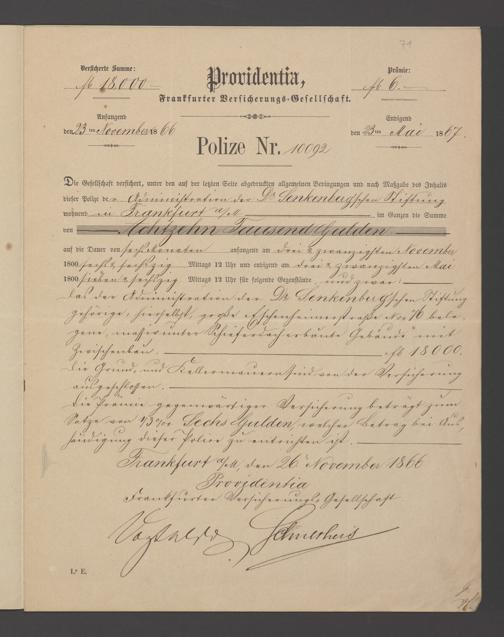 71
Versicherte Summe:
fl 18,000 —
Providentia,
Prämie:
fl 6. —
Frankfurter Versicherungs-Gesellschaft.
Anfangend
den 23ten November 1866
Endigend
den 23ten Mai 1867.
Polize Nr. 10092
Die Gesellschaft versichert, unter den auf der letzten Seite abgedruckten allgemeinen Bedingungen und nach Maßgabe des Inhalts
dieser Polize der Administration der Dr Senkenberg'schen Stiftung
wohnend in Frankfurt a/M im Ganzen die Summe
von Achtzehn Tausend Gulden
auf die Dauer von sechs Monaten anfangend am drei & zwanzigsten November
1800 sechs & sechszig Mittags 12 Uhr und endigend am drei & zwanzigsten Mai
1800 sieben & sechszig Mittags 12 Uhr für folgende Gegenstände, und zwar:
das der Administration der Dr Senkenberg'schen Stiftung
gehörige, hierselbst, große Eschenheimerstraße No 76 bele-
gene, massiv unter Schieferdach erbaute Gebäude mit
Zwischenbau. fl 18000.
Die Grund- und Kellermauern sind von der Versicherung
ausgeschlossen.
Die Prämie gegenwärtiger Versicherung beträgt zum
Satze von 1/3 ‰ Sechs Gulden, welcher Betrag bei Aus-
händigung dieser Police zu entrichten ist.
Frankfurt a/M, den 26 November 1866
Providentia
Frankfurter Versicherungs Gesellschaft
I.a E.